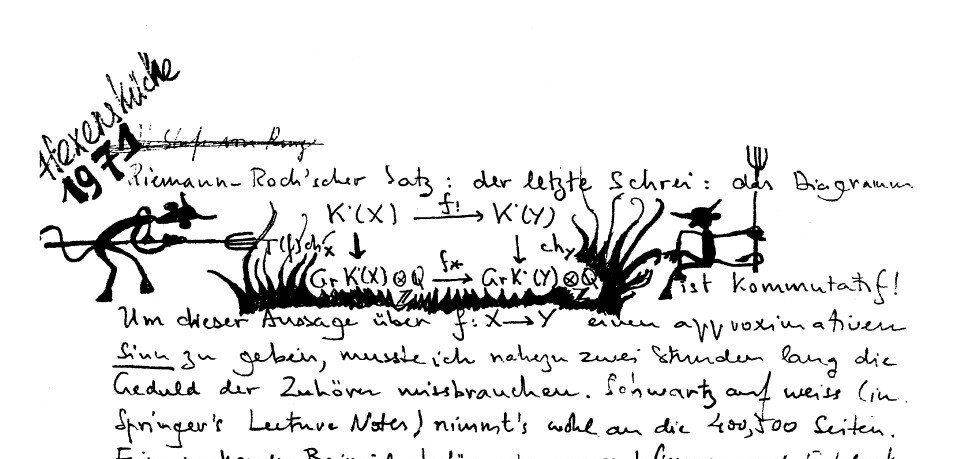 Hexenküche
1971
Riemann-Roch'scher Satz: der letzte Schrei: das Diagramm
K˙(X) f! → K˙(Y)
↓ T(f)ch_X ↓ ch_Y
Gr K˙(X)⊗Q f* → Gr K˙(Y)⊗Q
Z Z
ist kommutatif!
Um dieser Aussage über f: X→Y einen approximativen
Sinn zu geben, musste ich nahezu zwei Stunden lang die
Geduld der Zuhörer missbrauchen. Schwartz auf weiss (in
Springer's Lecture Notes) nimmt's wohl an die 400, 500 Seiten.